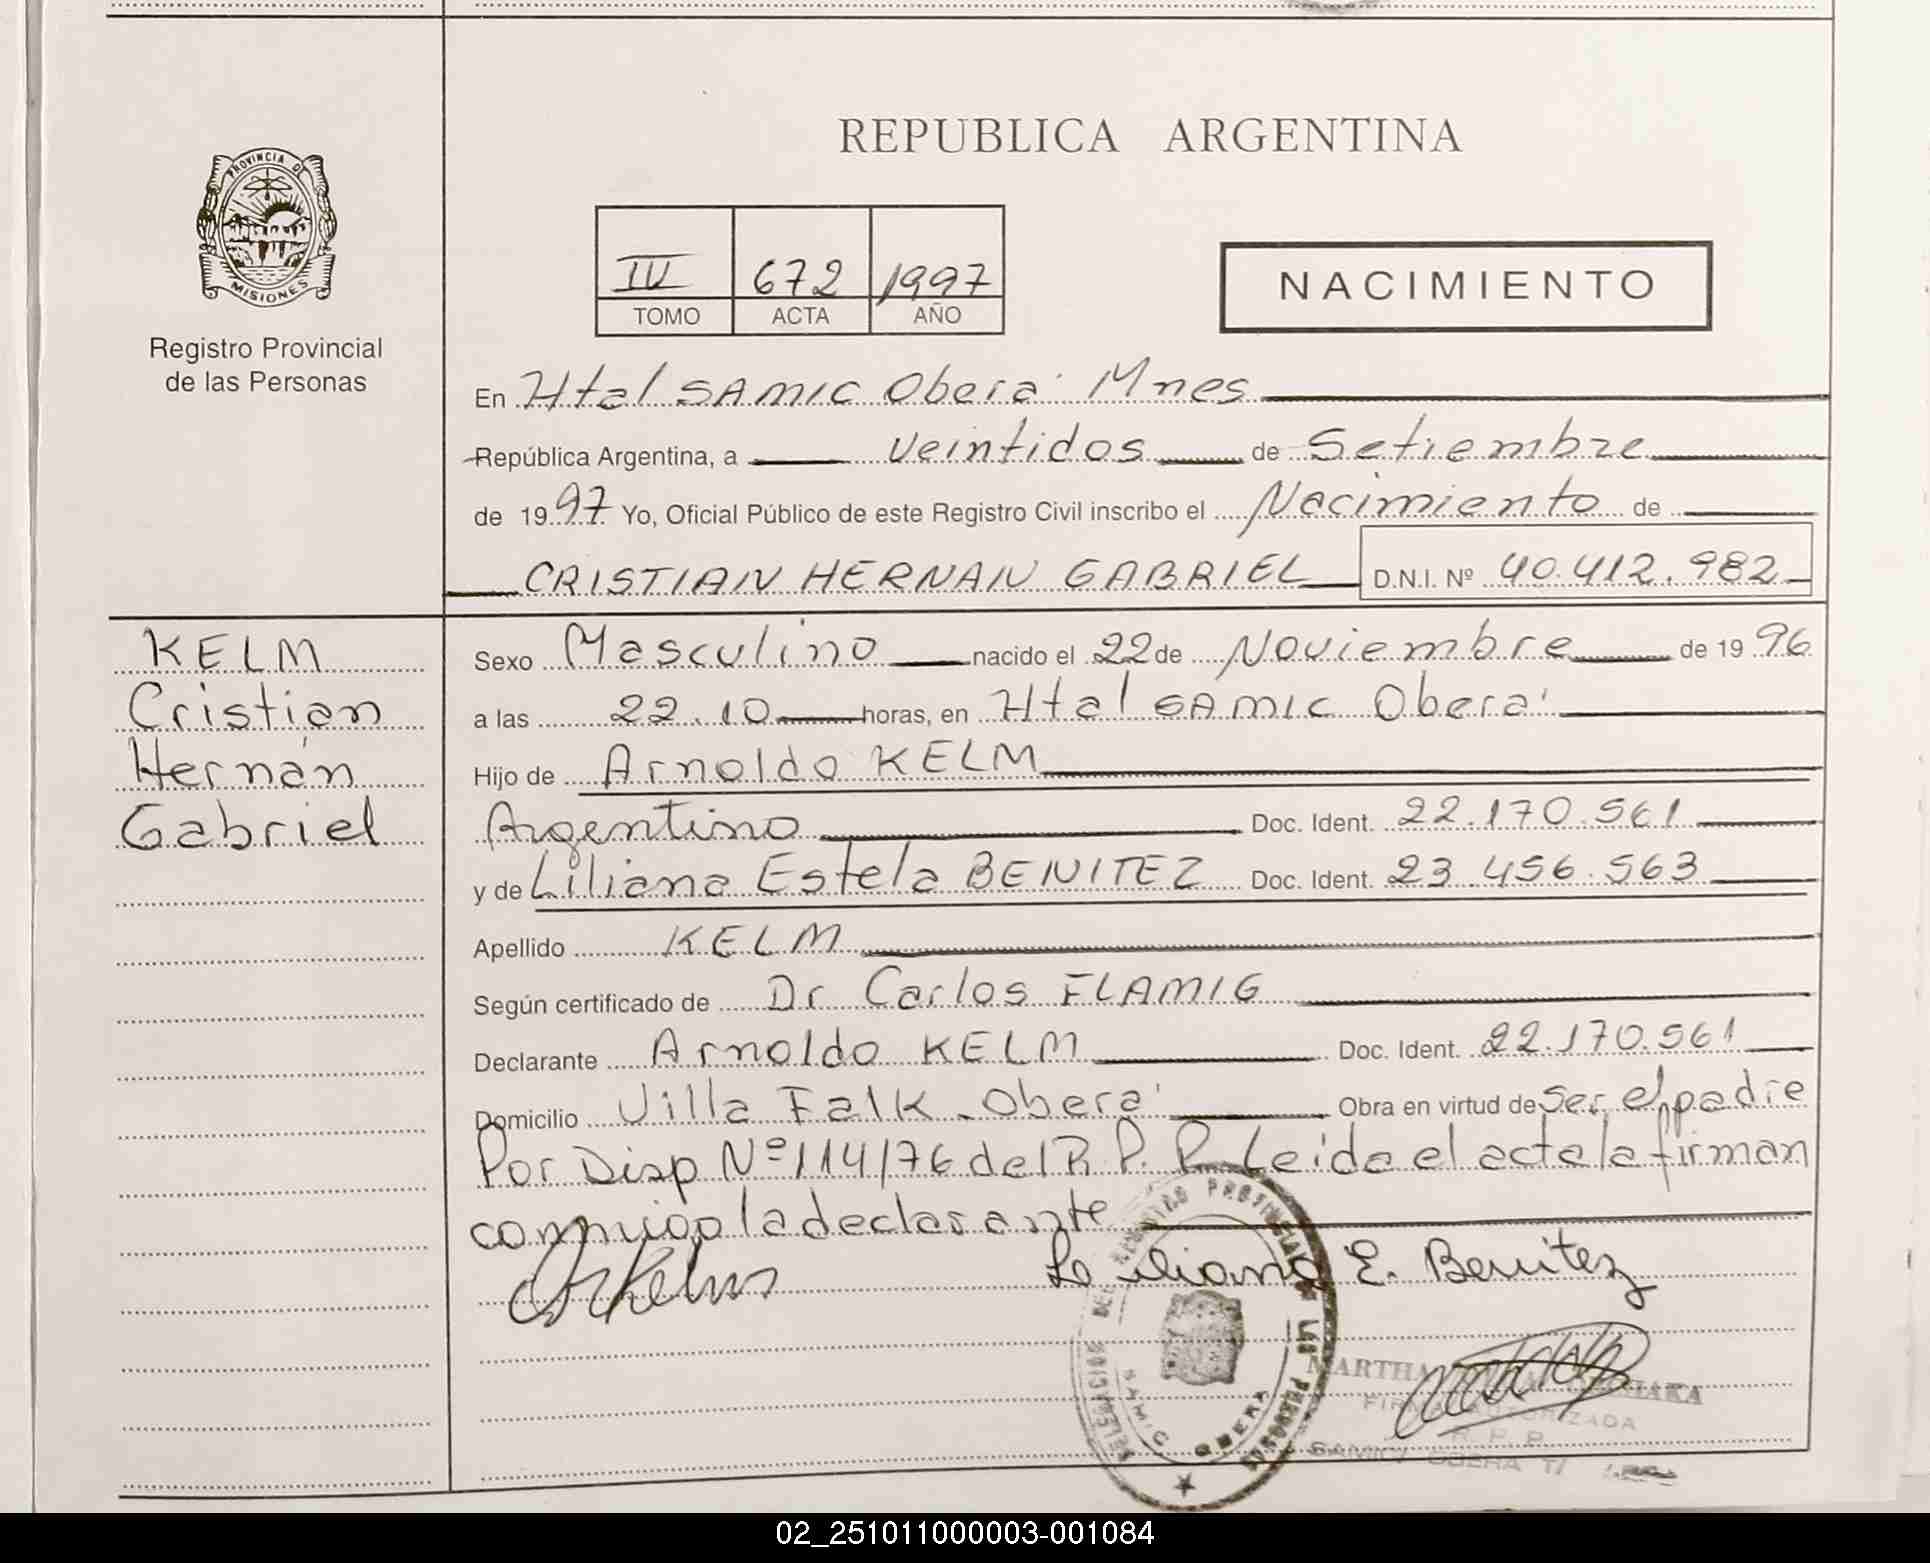 REPUBLICA ARGENTINA
PROVINCIA DE
MISIONES
Registro Provincial
de las Personas
IV 672 1997
TOMO ACTA AÑO
NACIMIENTO
En Htal SAMIC Oberá Mnes
República Argentina, a veintidos de Setiembre
de 1997 Yo, Oficial Público de este Registro Civil inscribo el Nacimiento de
CRISTIAN HERNAN GABRIEL D.N.I. Nº 40.412.982
KELM
Cristian
Hernán
Gabriel
Sexo Masculino nacido el 22 de Noviembre de 1996
a las 22.10 horas, en Htal SAMIC Oberá
Hijo de Arnoldo KELM
Argentino Doc. Ident. 22.170.561
y de Liliana Estela BENITEZ Doc. Ident. 23.456.563
Apellido KELM
Según certificado de Dr Carlos FLAMIG
Declarante Arnoldo KELM Doc. Ident. 22.170.561
Domicilio Villa Falk - Oberá Obra en virtud de ser el padre
Por Disp Nº 114/76 del R.P.P. Leida el acta la firman
conmigo la declarante
E. Benitez
DELEGACION DEL REGISTRO PROVINCIAL DE LAS PERSONAS
SAMIC OBERA
MARTHA
FIRMA AUTORIZADA
R. P. P.
SAMIC OBERA
02_251011000003-001084